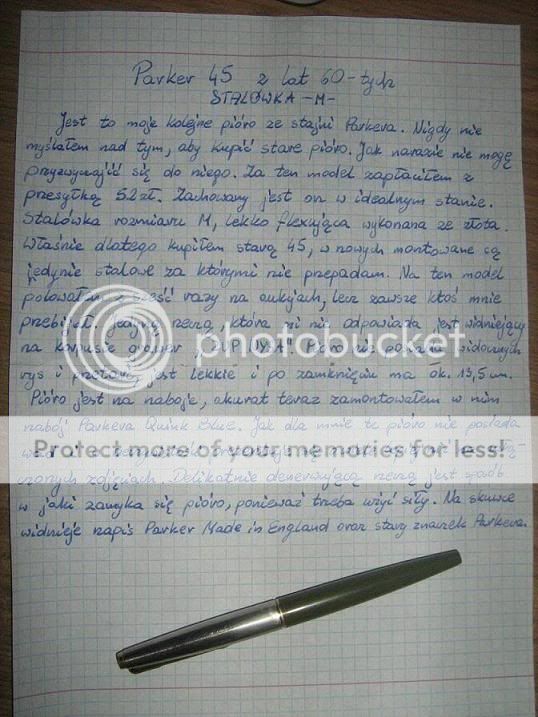 Parker 45 z lat 60-tych
STALÓWKA -M-
Jest to moje kolejne pióro ze stajni Parkera. Nigdy nie
myślałem nad tym, aby kupić stare pióro. Jak narazie nie mogę
przyzwyczaić się do niego. Za ten model zapłaciłem z
przesyłką 52zł. Zachowany jest on w idealnym stanie.
Stalówka rozmiaru M, lekko flexująca wykonana ze złota.
Właśnie dlatego kupiłem starą 45, w nowych montowane są
jedynie stalowe za którymi nie przepadam. Na ten model
polowałem z sześć razy na aukcjach, lecz zawsze ktoś mnie
przebijał. Jedyną rzeczą, która mi nie odpowiada jest widniejący
na korpusie grawer. Pióro nie posiada widocznych
rys i przetarć, jest lekkie i po zamknięciu ma ok. 13,5 cm.
Pióro jest na naboje, akurat teraz zamontowałem w nim
nabój Parkera Quink Blue. Jak dla mnie to pióro nie posiada
zdjęciach. Delikatnie denerwującą rzeczą jest sposób
w jaki zamyka się pióro, ponieważ trzeba użyć siły. Na skuwce
widnieje napis Parker Made in England oraz stary znaczek Parkera.
photobucket
Protect more of your memories for less!